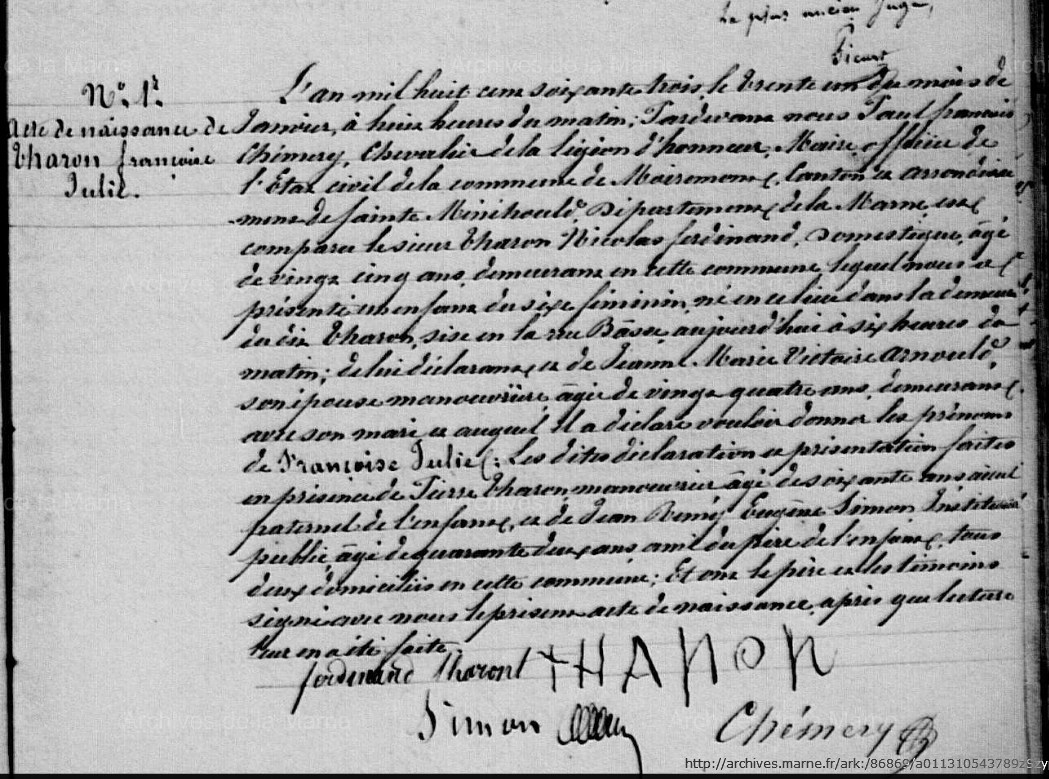 Le plus ancien Juge,
Ficart
N°. 1er.
Acte de naissance de
Tharon françoise
Julie.
L'an mil huit cent soixante trois, le trente un du mois de
Janvier, à huit heures du matin; Pardevant nous Paul françois
Chémery, Chevalier de la légion d'honneur, Maire officier de
l'Etat civil de la commune de Moiremont, Canton et arrondisse
ment de Sainte Ménéhould, Département de la Marne, est
comparu le sieur Tharon Nicolas ferdinand, Domestique, âgé
de vingt cinq ans, demeurant en cette commune, lequel nous a
présenté un enfant du sexe féminin, né en ce lieu dans la demeure
du dit Tharon, sise en la rue Basse, aujourd'hui à six heures du
matin; de lui déclarant et de Jeanne Marie Victoire Arnould,
son épouse manouvrière, âgée de vingt quatre ans, demeurant
avec son mari et auquel il a déclaré vouloir donner les prénoms
de Françoise Julie; Les dites déclaration et présentation faites
en présence de Pierre Tharon manouvrier âgé de soixante ans aïeul
paternel de l'enfant, et de Jean Remi Eugène Simon Instituteur
public, âgé de quarante deux ans, ami du père de l'enfant, tous
deux domiciliés en cette commune; Et ont le père et les témoins
signé avec nous le présent acte de naissance, après que lecture
leur en a été faite.
ferdinand tharont THARON
Simon
Chémery
Archives de la Marne
http://archives.marne.fr/ark:/86869/a011310543789zszy